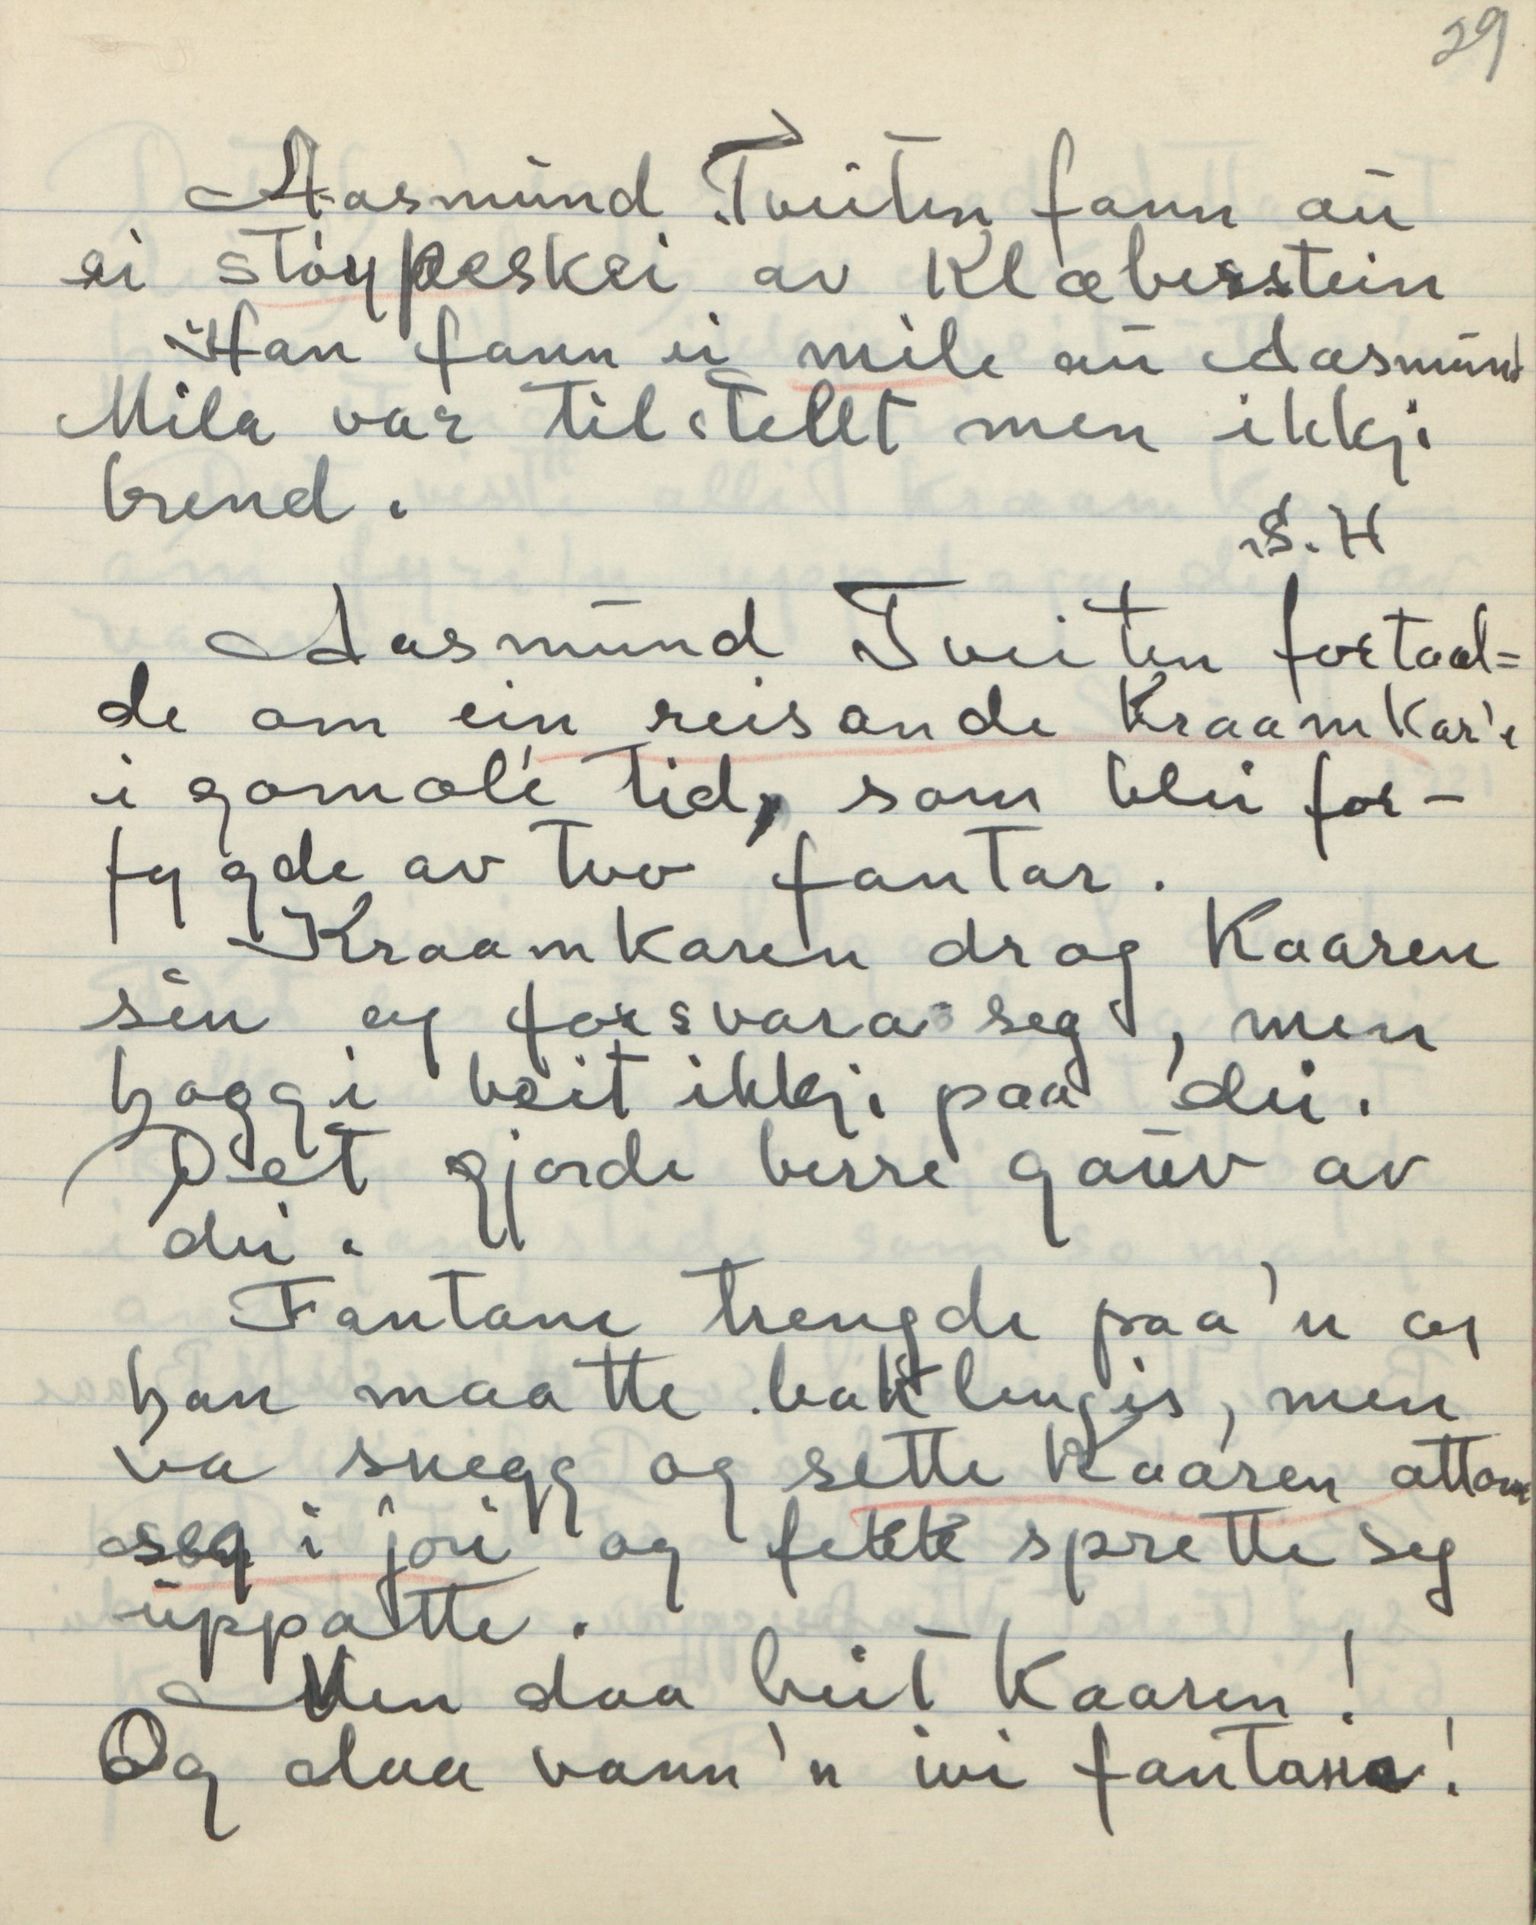 29
Aasmund Tveiten fann au
ei støypeskei av Klæbersstein
Han fann ei mile au Aasmund
Mila var tilstellt men ikkji
brend.
S. H
Aasmund Tveiten fortaal=
de om ein reisande Kraamkar'e
i gomole tid, som blei for-
fygde av tvo fantar.
Kraamkaren drog Kaaren
sin og forsvara seg, men
hoggi beit ikkji paa dei.
Det gjorde berre gauv av
dei.
Fantane trengde paa'n og
han maatte baklengis, men
va snegg og sette Kaaren attom
seg i jori og fekk sprette seg
uppatte.
Men daa beit Kaaren!
Og daa vann'n ivi fantane!